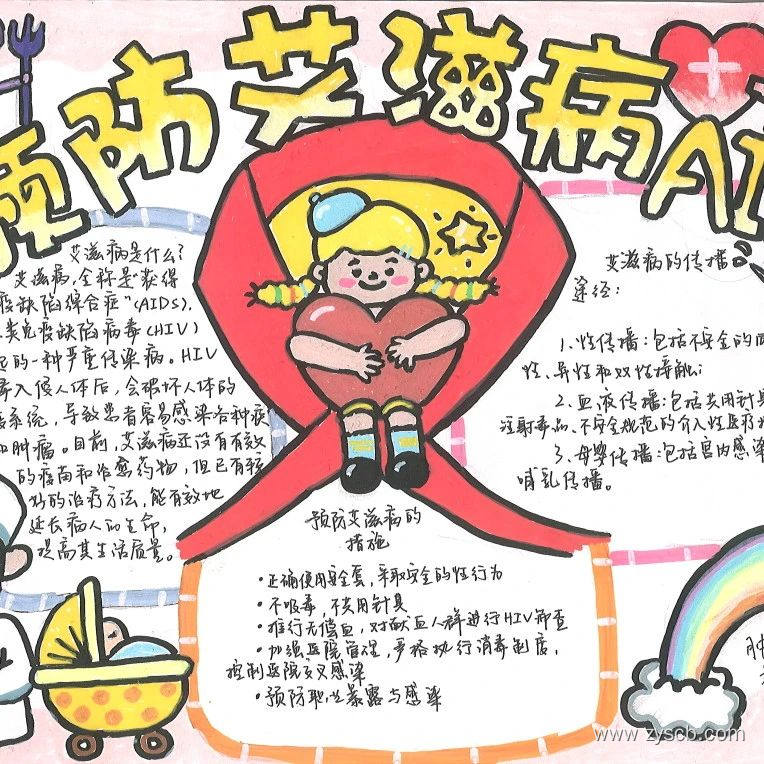 预防艾滋病AI
艾滋病是什么？
艾滋病，全称是“获得
疫缺陷综合症”(AIDS),
类免疫缺陷病毒(HIV)
起的一种严重传染病。HIV
毒入侵人体后，会破坏人体的
系统，导致患者容易感染各种疾
和肿瘤。目前，艾滋病还没有有效
的疫苗和治愈药物，但已有较
好的治疗方法，能有效地
延长病人的生命，
提高其生活质量。
艾滋病的传播
途径：
1.性传播：包括不安全的同
性、异性和双性接触；
2.血液传播：包括共用针具
注射毒品、不安全规范的介入性医疗
3.母婴传播：包括宫内感染
哺乳传播。
预防艾滋病的
措施
·正确使用安全套，采取安全的性行为
·不吸毒，不共用针具
·推行无偿血，对献血人群进行HIV筛查
·加强医院管理，严格执行消毒制度，
控制医院交叉感染
·预防职业暴露与感染
www.zyscb.com